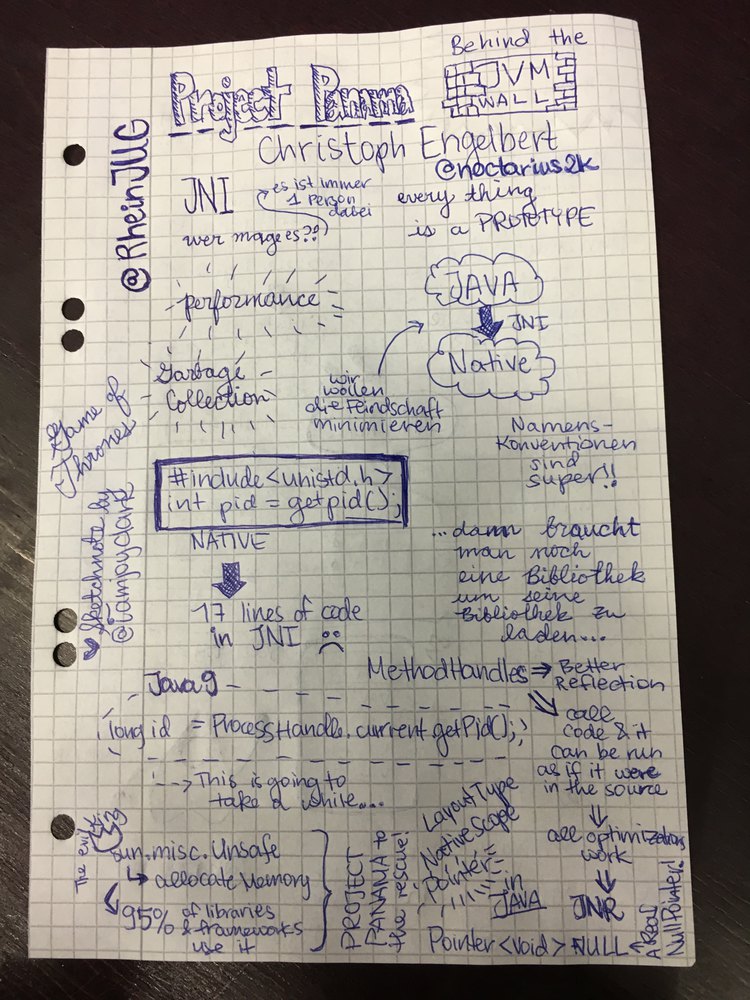 Behind the
JVM
WALL
Project Panama
Christoph Engelbert
@noctarius2k
@RheinJUG
JNI
es ist immer
1 Person
dabei
wer mag es??
every thing
is a PROTOTYPE
performance
JAVA
JNI
Native
Garbage
Collection
wir
wollen
die Feindschaft
minimieren
Namens-
Konventionen
sind
super!!
Game of
Thrones
Sketchnote by
@iamjoyclark
#include<unistd.h>
int pid = getpid();
NATIVE
17 lines of code
in JNI
...dann braucht
man noch
eine Bibliothek
um seine
Bibliothek zu
laden...
MethodHandles => Better
Reflection
call
code & it
can be run
as if it were
in the source
all optimizations
work
JNR
Java9
long id = ProcessHandle.current.getPid();
---> This is going to
take a while...
The evil
sun.misc.Unsafe
allocate Memory
95% of libraries
& frameworks
use it
PROJECT
PANAMA to
the rescue!
LayoutType
NativeScope
Pointer
in
JAVA
Pointer<void> = NULL
A Real
NullPointer!